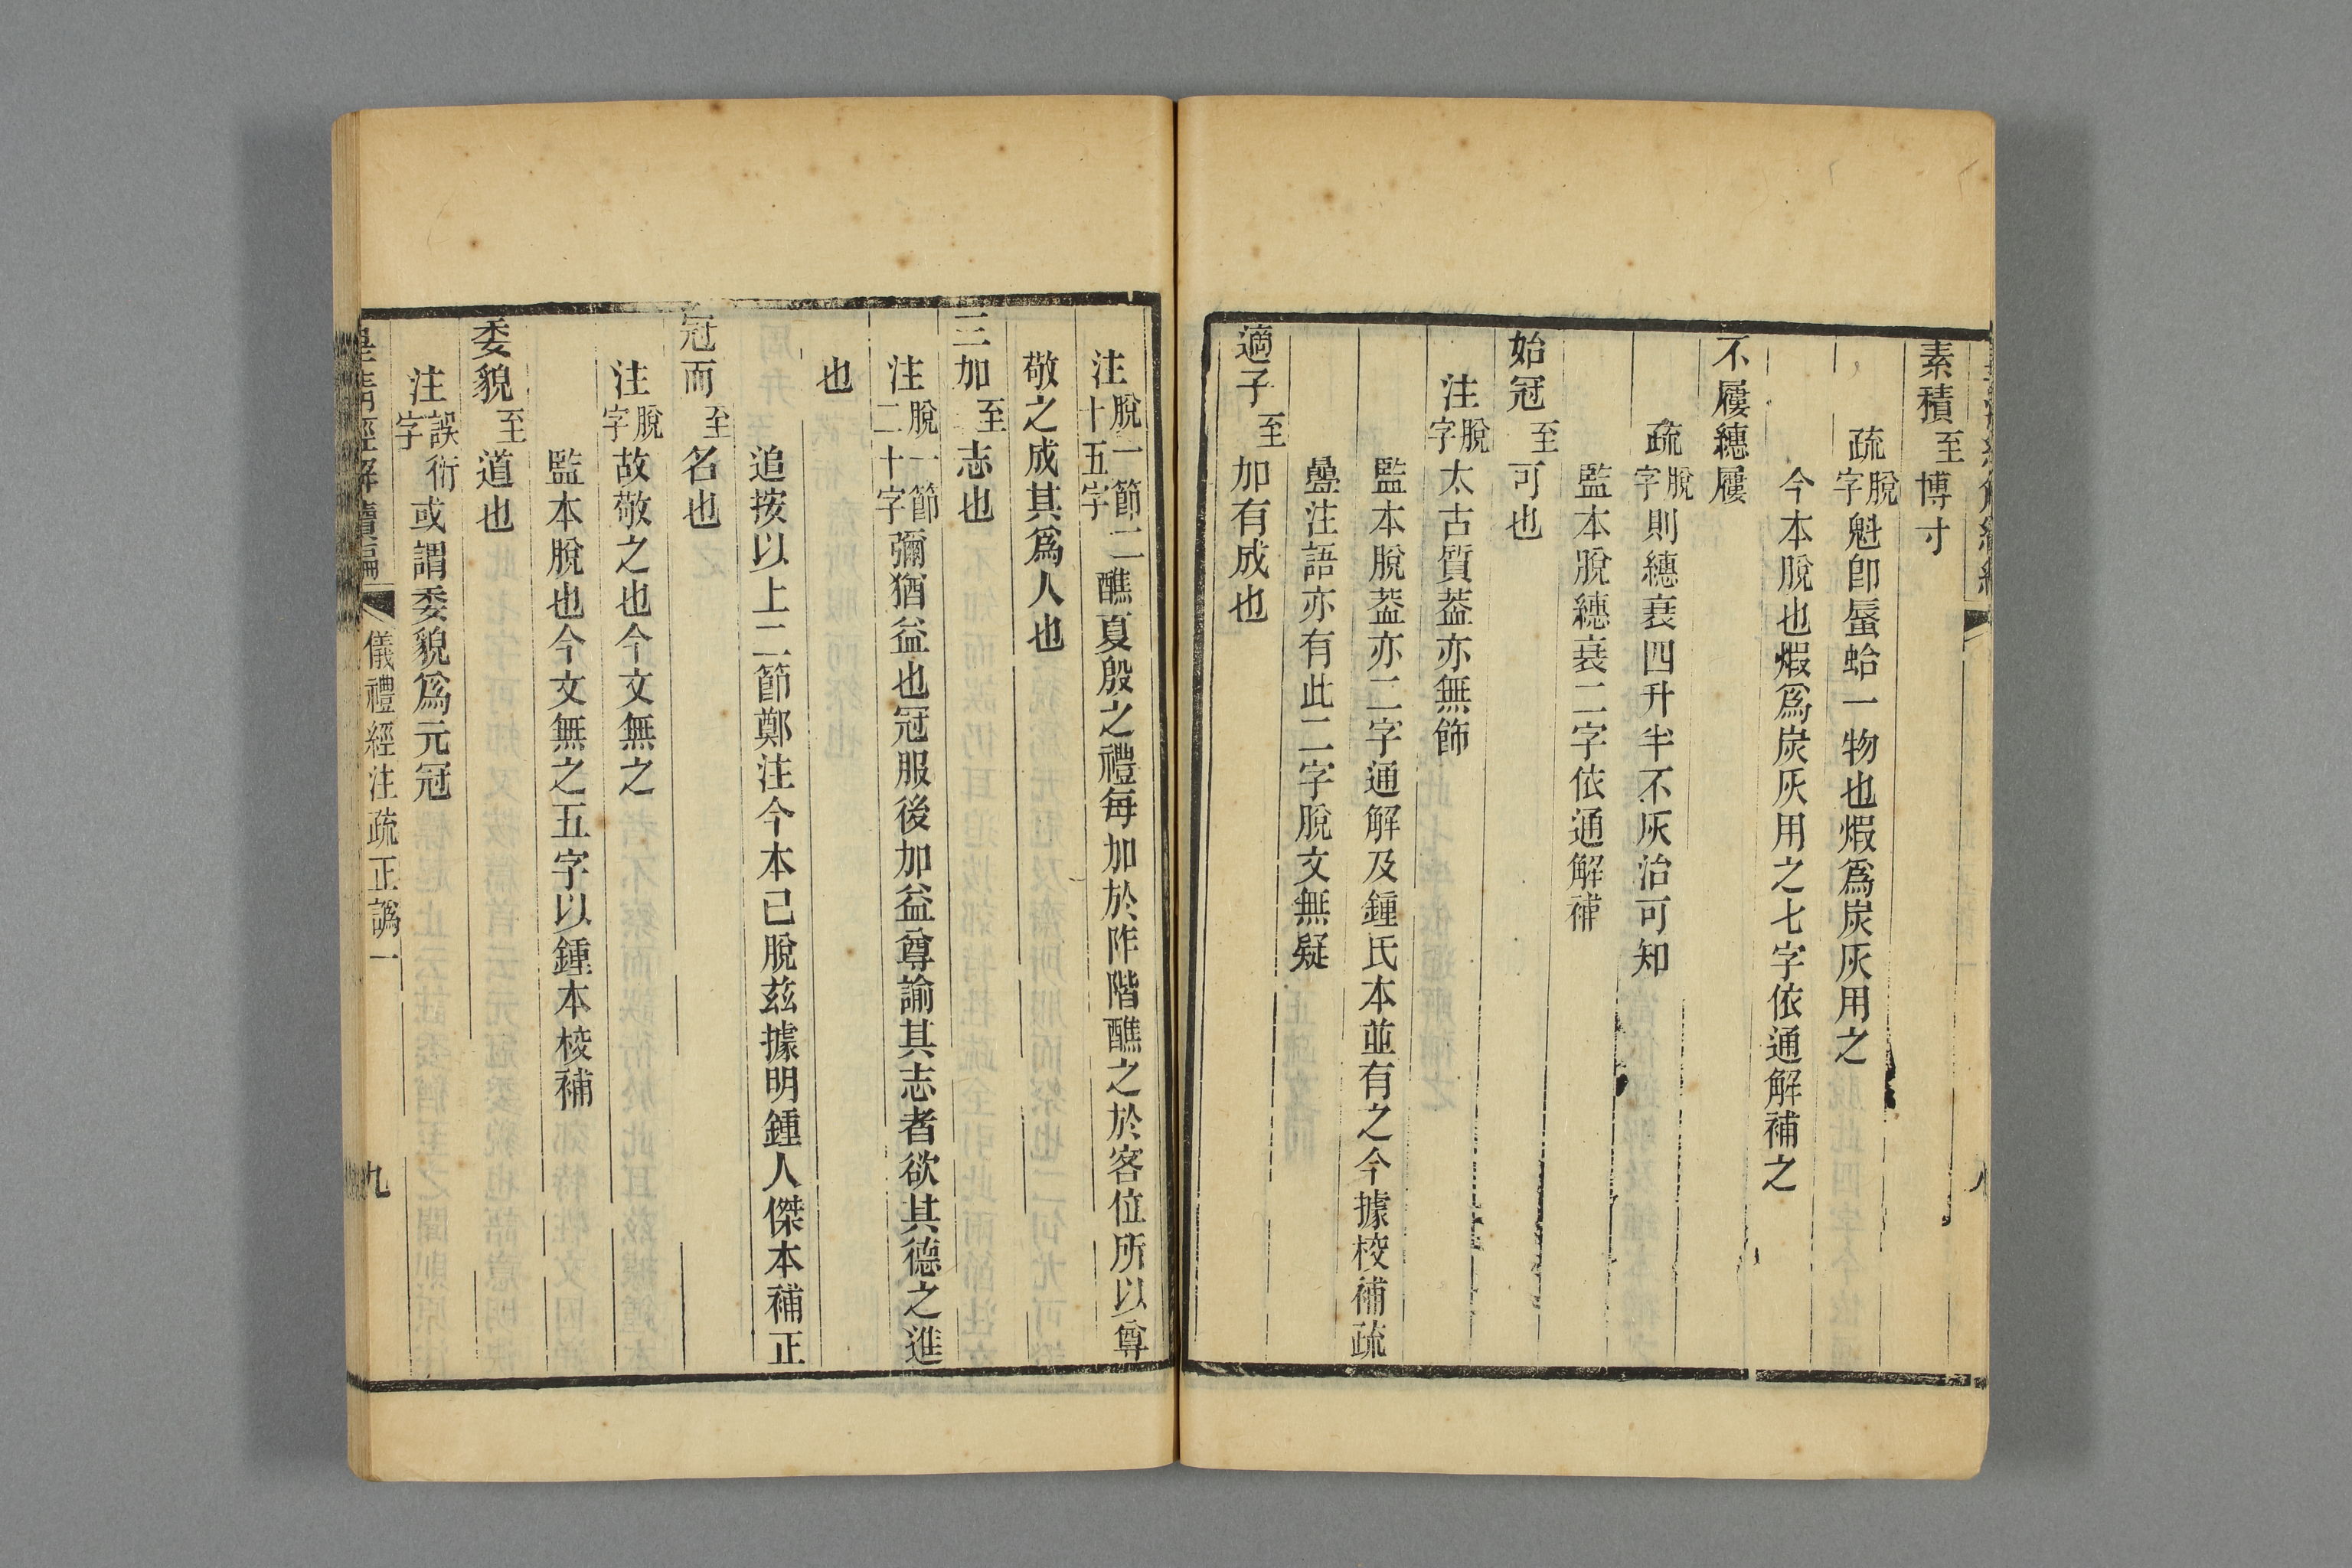 素積至博寸
疏脫字魁卽蜃蛤一物也煆爲炭灰用之
今本脫也煆爲炭灰用之七字依通解補之
不屨繐屨
疏脫字則繐衰四升半不灰治可知
監本脫繐衰二字依通解補
始冠至可也
注脫字太古質葢亦無飾
監本脫葢亦二字通解及鍾氏本並有之今據校補疏
疊注語亦有此二字脫文無疑
適子至加有成也
注脫一節二十五字醮夏殷之禮每加於阼階醮之於客位所以尊
敬之成其爲人也
三加至志也
注脫一節二十字彌猶益也冠服後加益尊諭其志者欲其德之進
也
追按以上二節鄭注今本已脫茲據明鍾人傑本補正
冠而至名也
注脫字故敬之也今文無之
監本脫也今文無之五字以鍾本校補
委貌至道也
注誤衍字或謂委貌爲元冠
皇淸經解續編 儀禮經注疏正譌一 九